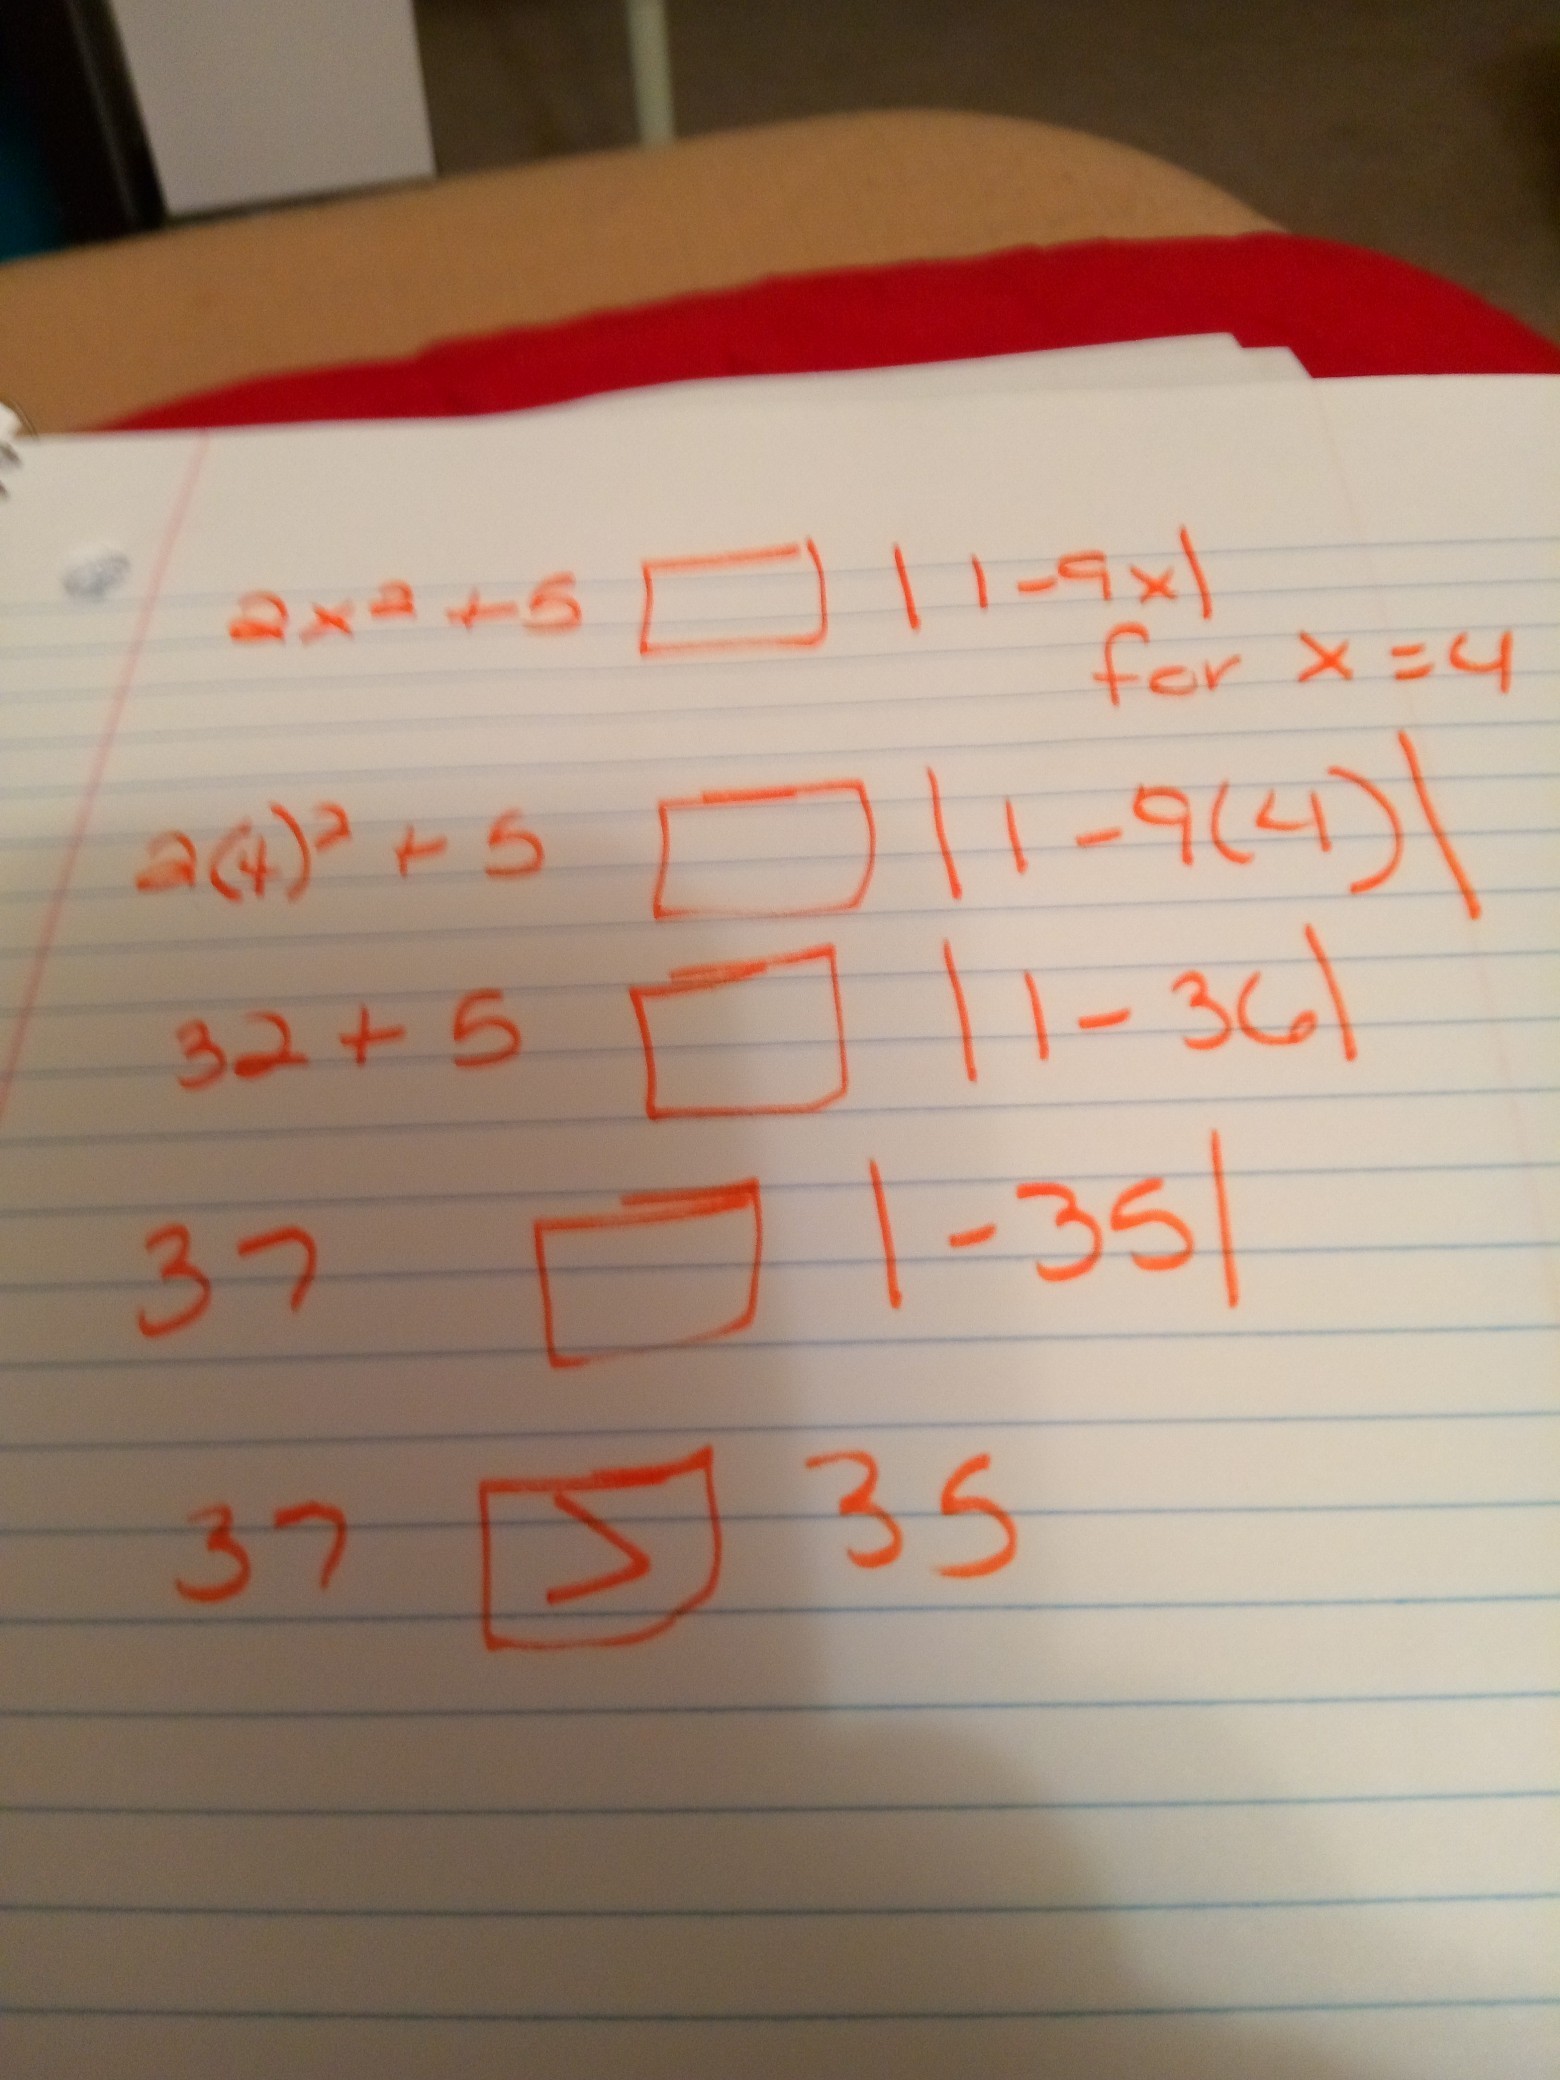 2x² + 5 □ |1 - 9x|
for x = 4
2(4)² + 5 □ |1 - 9(4)|
32 + 5 □ |1 - 36|
37 □ |-35|
37 > 35